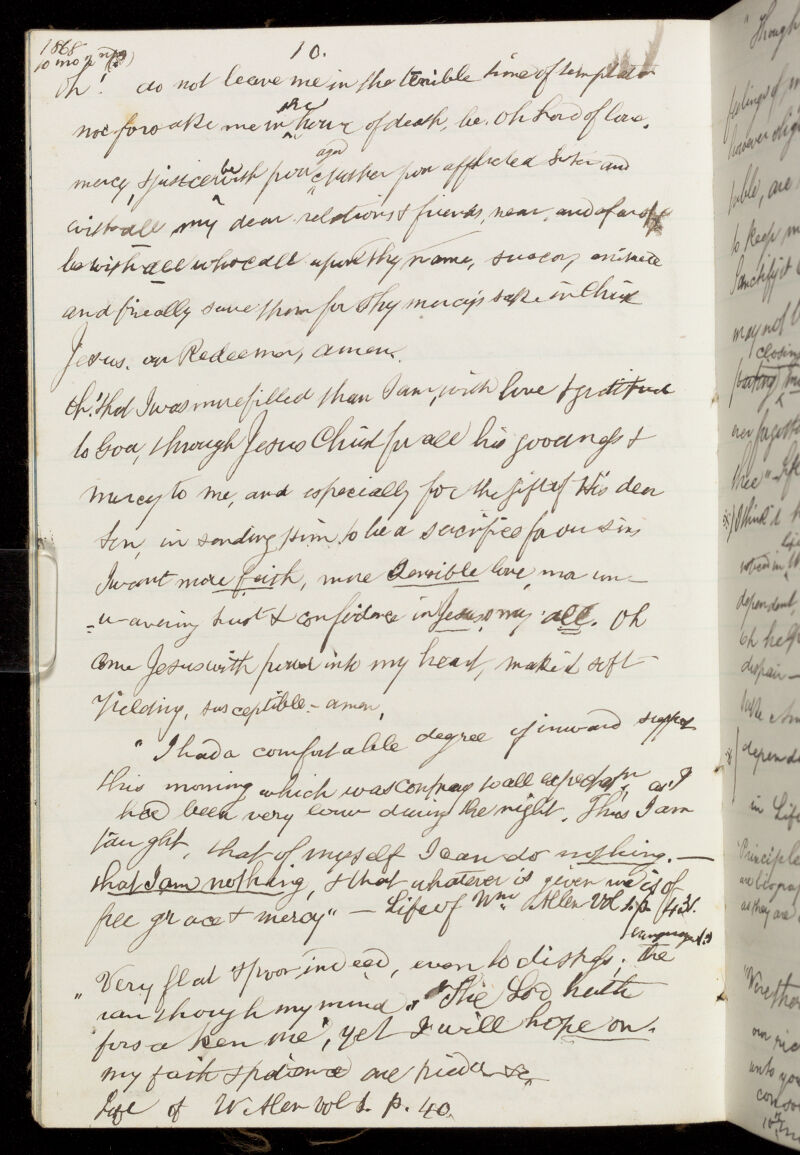 1868
10 mo
10.
Oh! do not leave me in the terrible time of temptation
nor forsake me in the hour of death, be, Oh Lord of love,
mercy, & justice be with poor aged father poor afflicted Sister and
with all my dear relations & friends, near, and afar off
be with all who call upon Thy name, succor, animate
and finally save them for Thy mercy's sake in Christ
Jesus. our Redeemer, amen.
Oh! that I was more filled than I am, with love & gratitude
to God, through Jesus Christ for all his goodness &
mercy to me, and especially for the gift of His dear
Son, in sending Him to be a sacrifice for our sins
I want more faith, more sensible love, more un-
=wavering trust & confidence in Jesus, my all. Oh
come Jesus with power into my heart, make it soft
Yielding, susceptible - amen,
"I had a comfortable degree of inward support
this morning which was contrary to all expectation, as I
had been very low during the night. Thus I am
taught, that of myself I can do nothing. —
that I am nothing, & that whatever is given me is of
free grace & mercy" — Life of Wm Allen Vol 1. p
"Very flat & poor, indeed, even to distress; the language
ran through my mind, "The Lord hath
forsaken me", yet I will hope on.
my faith & patience are tried
Life of W Allen vol 1. p. 40.
"Though
feelings of
however
to keep
Sanctify it
may not
closing
thee" - Life
dependent,
Oh help
despair —
depend
in Life
Principle
as they are
our
unto you